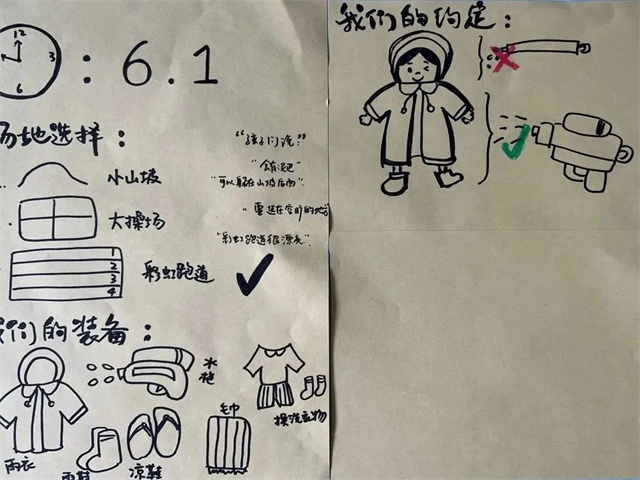 12
3
6
: 6.1
场地选择：
“孩子们说：”
小山坡
“可以躲在山坡后面”
大操场
“要选在空旷的地方
“彩虹跑道很漂亮”
1
2
3
4
彩虹跑道
我们的装备：
水枪
雨衣
雨鞋
凉鞋
毛巾
换洗衣物
我们的约定：